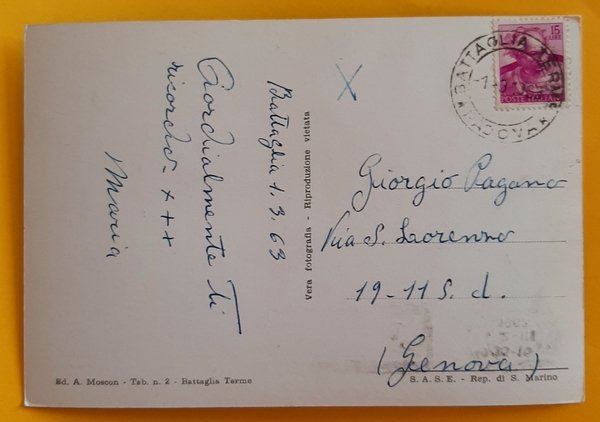 Battaglia 1.3.63
Cordialmente ti
ricordo - x + x
Maria
Vera fotografia - Riproduzione vietata
Ed. A. Moscon - Tab. n. 2 - Battaglia Terme
15
LIRE
POSTE ITALIANE
BATTAGLIA TERME
Giorgio Pagano
Via S. Lorenzo
19-11 S. d.
(Genova)
S. A. S. E. - Rep. di S. Marino